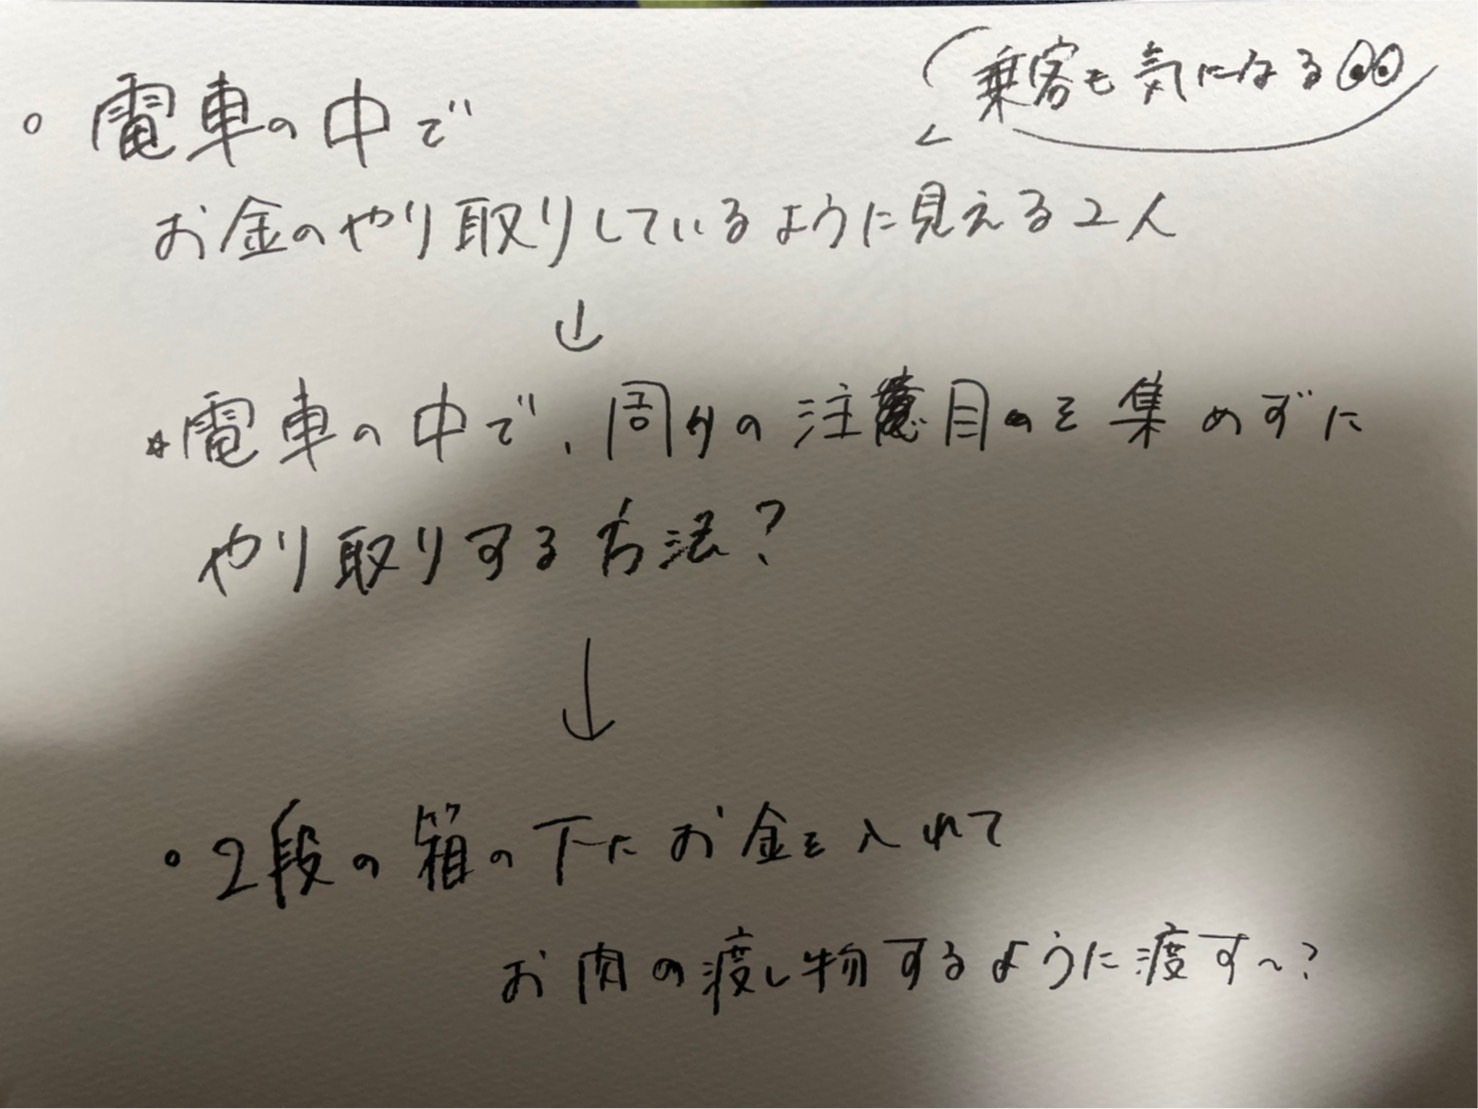 乗客も気になる
電車の中で
お金のやり取りしているように見える2人
電車の中で、周りの注目を集めずに
やり取りする方法?
2段の箱の下にお金を入れて
お肉の渡し物するように渡す〜?